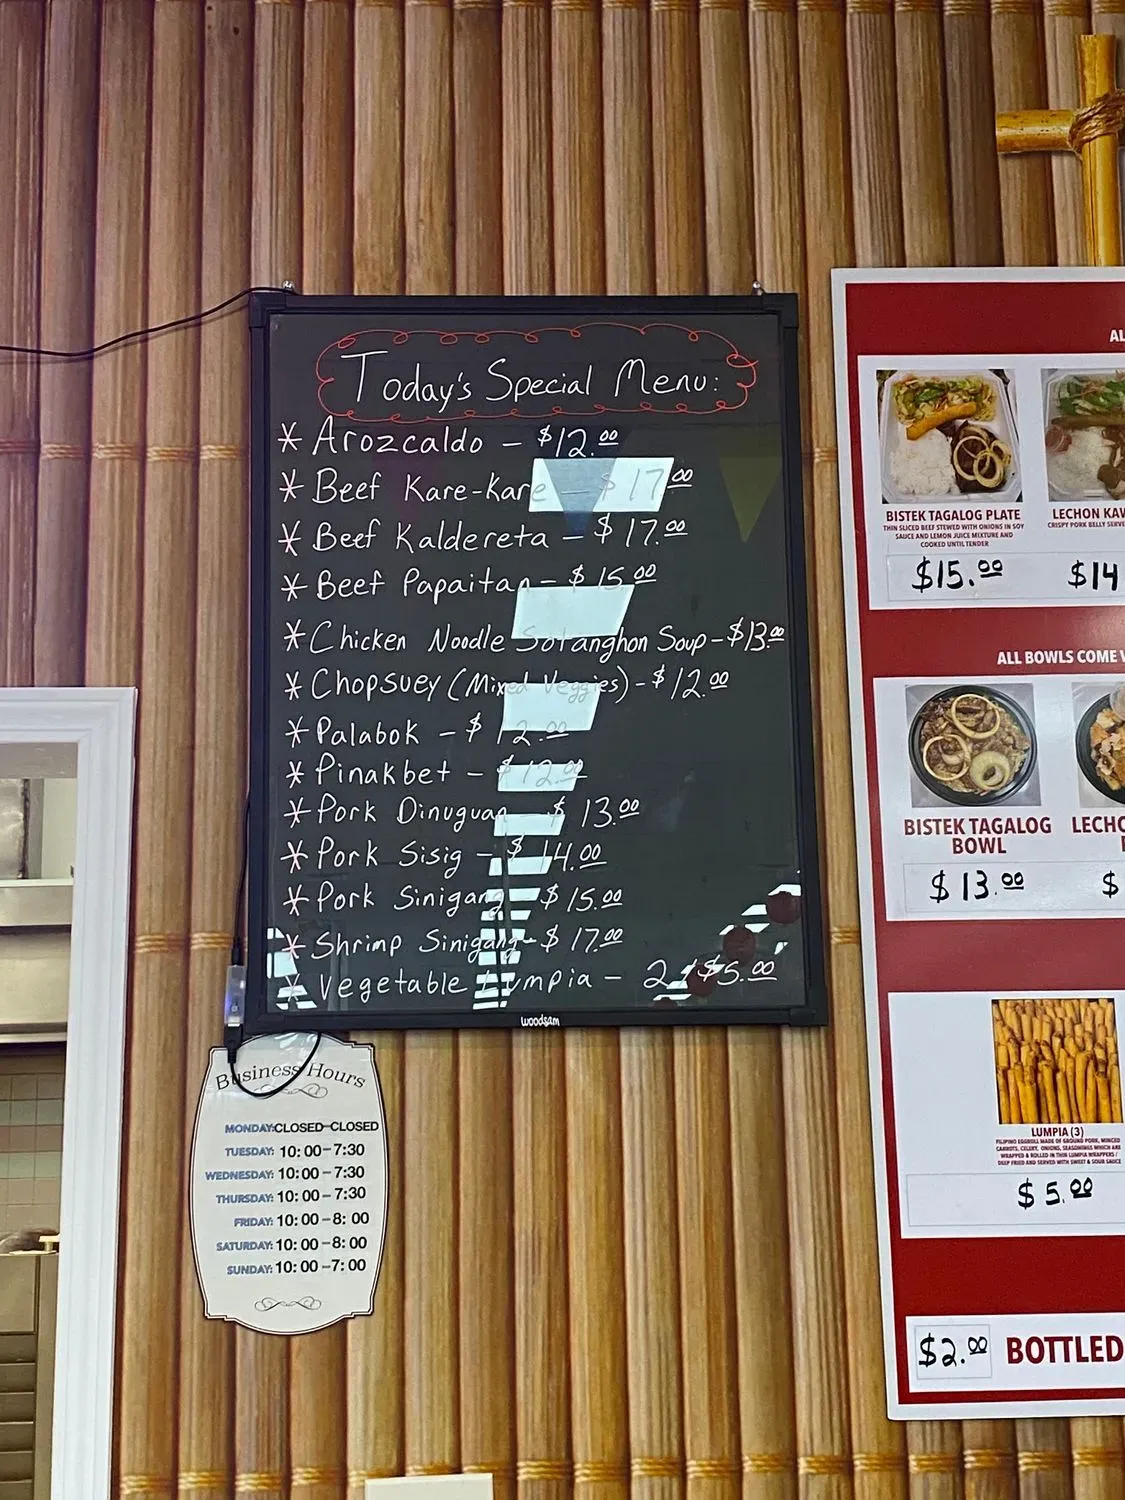 Today's Special Menu:
* Arozcaldo - $12.00
* Beef Kare-Kare - $17.00
* Beef Kaldereta - $17.00
* Beef Papaitan - $15.00
* Chicken Noodle Sotanghon Soup - $13.00
* Chopsuey (Mixed Veggies) - $12.00
* Palabok - $12.00
* Pinakbet - $12.00
* Pork Dinuguan - $13.00
* Pork Sisig - $14.00
* Pork Sinigang - $15.00
* Shrimp Sinigang - $17.00
* Vegetable Lumpia - 2/$5.00
woodsam
Business Hours
MONDAY: CLOSED-CLOSED
TUESDAY: 10:00-7:30
WEDNESDAY: 10:00-7:30
THURSDAY: 10:00-7:30
FRIDAY: 10:00-8:00
SATURDAY: 10:00-8:00
SUNDAY: 10:00-7:00
AL
BISTEK TAGALOG PLATE
THIN SLICED BEEF STEWED WITH ONIONS IN SOY
SAUCE AND LEMON JUICE MIXTURE AND
COOKED UNTIL TENDER
$15.00
LECHON KAW
CRISPY PORK BELLY SERVE
$14
ALL BOWLS COME
BISTEK TAGALOG
BOWL
$13.00
LECHO
$
LUMPIA (3)
FILIPINO EGGROLL MADE OF GROUND PORK, MINCED
CARROTS, CELERY, ONIONS, SEASONINGS WHICH ARE
WRAPPED & ROLLED IN THIN LUMPIA WRAPPERS /
DEEP FRIED AND SERVED WITH SWEET & SOUR SAUCE
$5.00
$2.00 BOTTLED